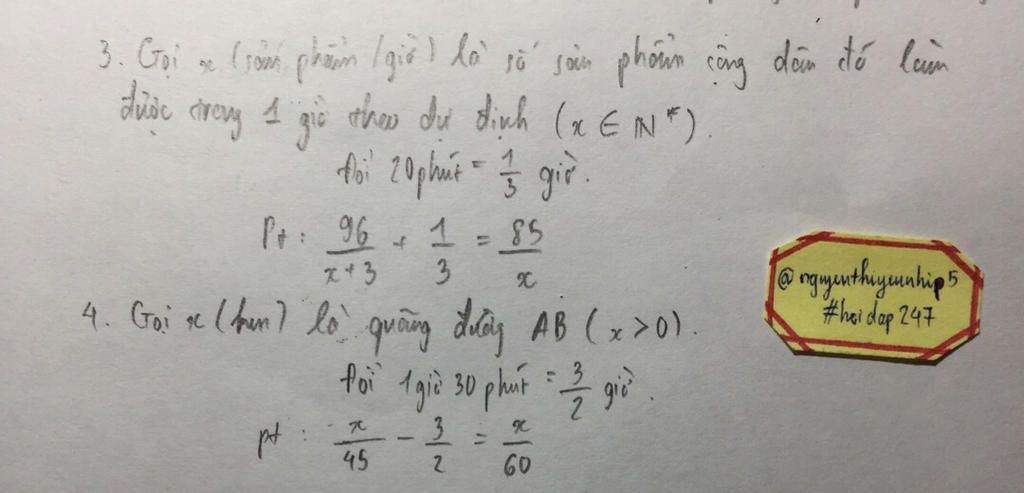 3. Gọi x (sản phẩm/giờ) là số sản phẩm công dân đó làm
được trong 1 giờ theo dự định (x ∈ N*).
Đổi 20 phút = 1/3 giờ.
Pt : 96/(x+3) + 1/3 = 85/x
4. Gọi x (km) là quãng đường AB (x > 0).
Đổi 1 giờ 30 phút = 3/2 giờ.
pt : x/45 - 3/2 = x/60
@nguyenthiyeunhip5
#hoidap247